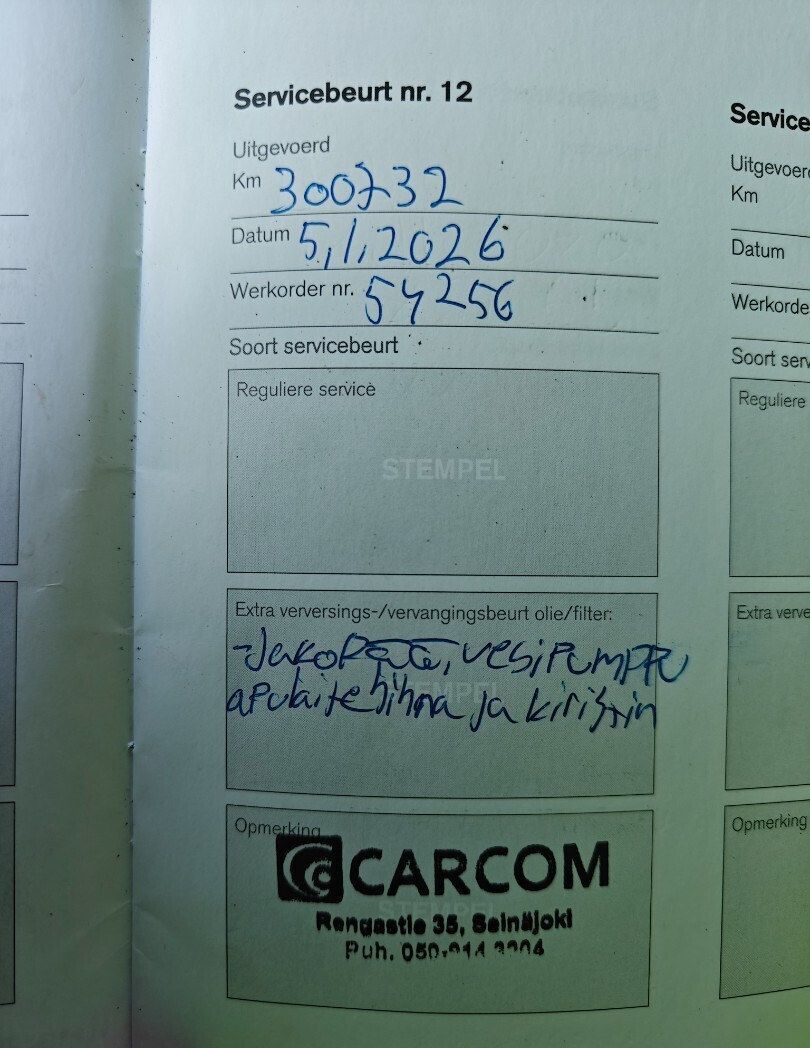 Servicebeurt nr. 12
Uitgevoerd
Km 300732
Datum 5,1,2026
Werkorder nr. 54256
Soort servicebeurt
Reguliere service
STEMPEL
Extra verversings-/vervangingsbeurt olie/filter:
-Jakopää, vesipumppu
STEMPEL
apulaitehihna ja kiristin
Opmerking
CARCOM
STEMPEL
Rengastie 35, Seinäjoki
Puh. 050
Service
Uitgevoerd
Km
Datum
Werkorde
Soort serv
Reguliere
Extra verve
Opmerking